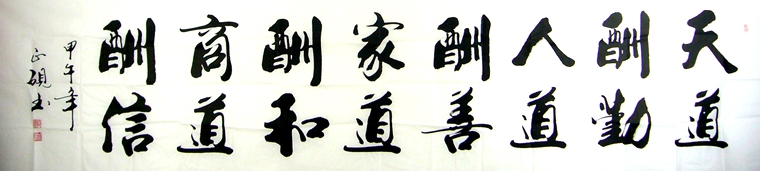 天道
酬勤
人道
酬善
家道
酬和
商道
酬信
甲午年
正砚书